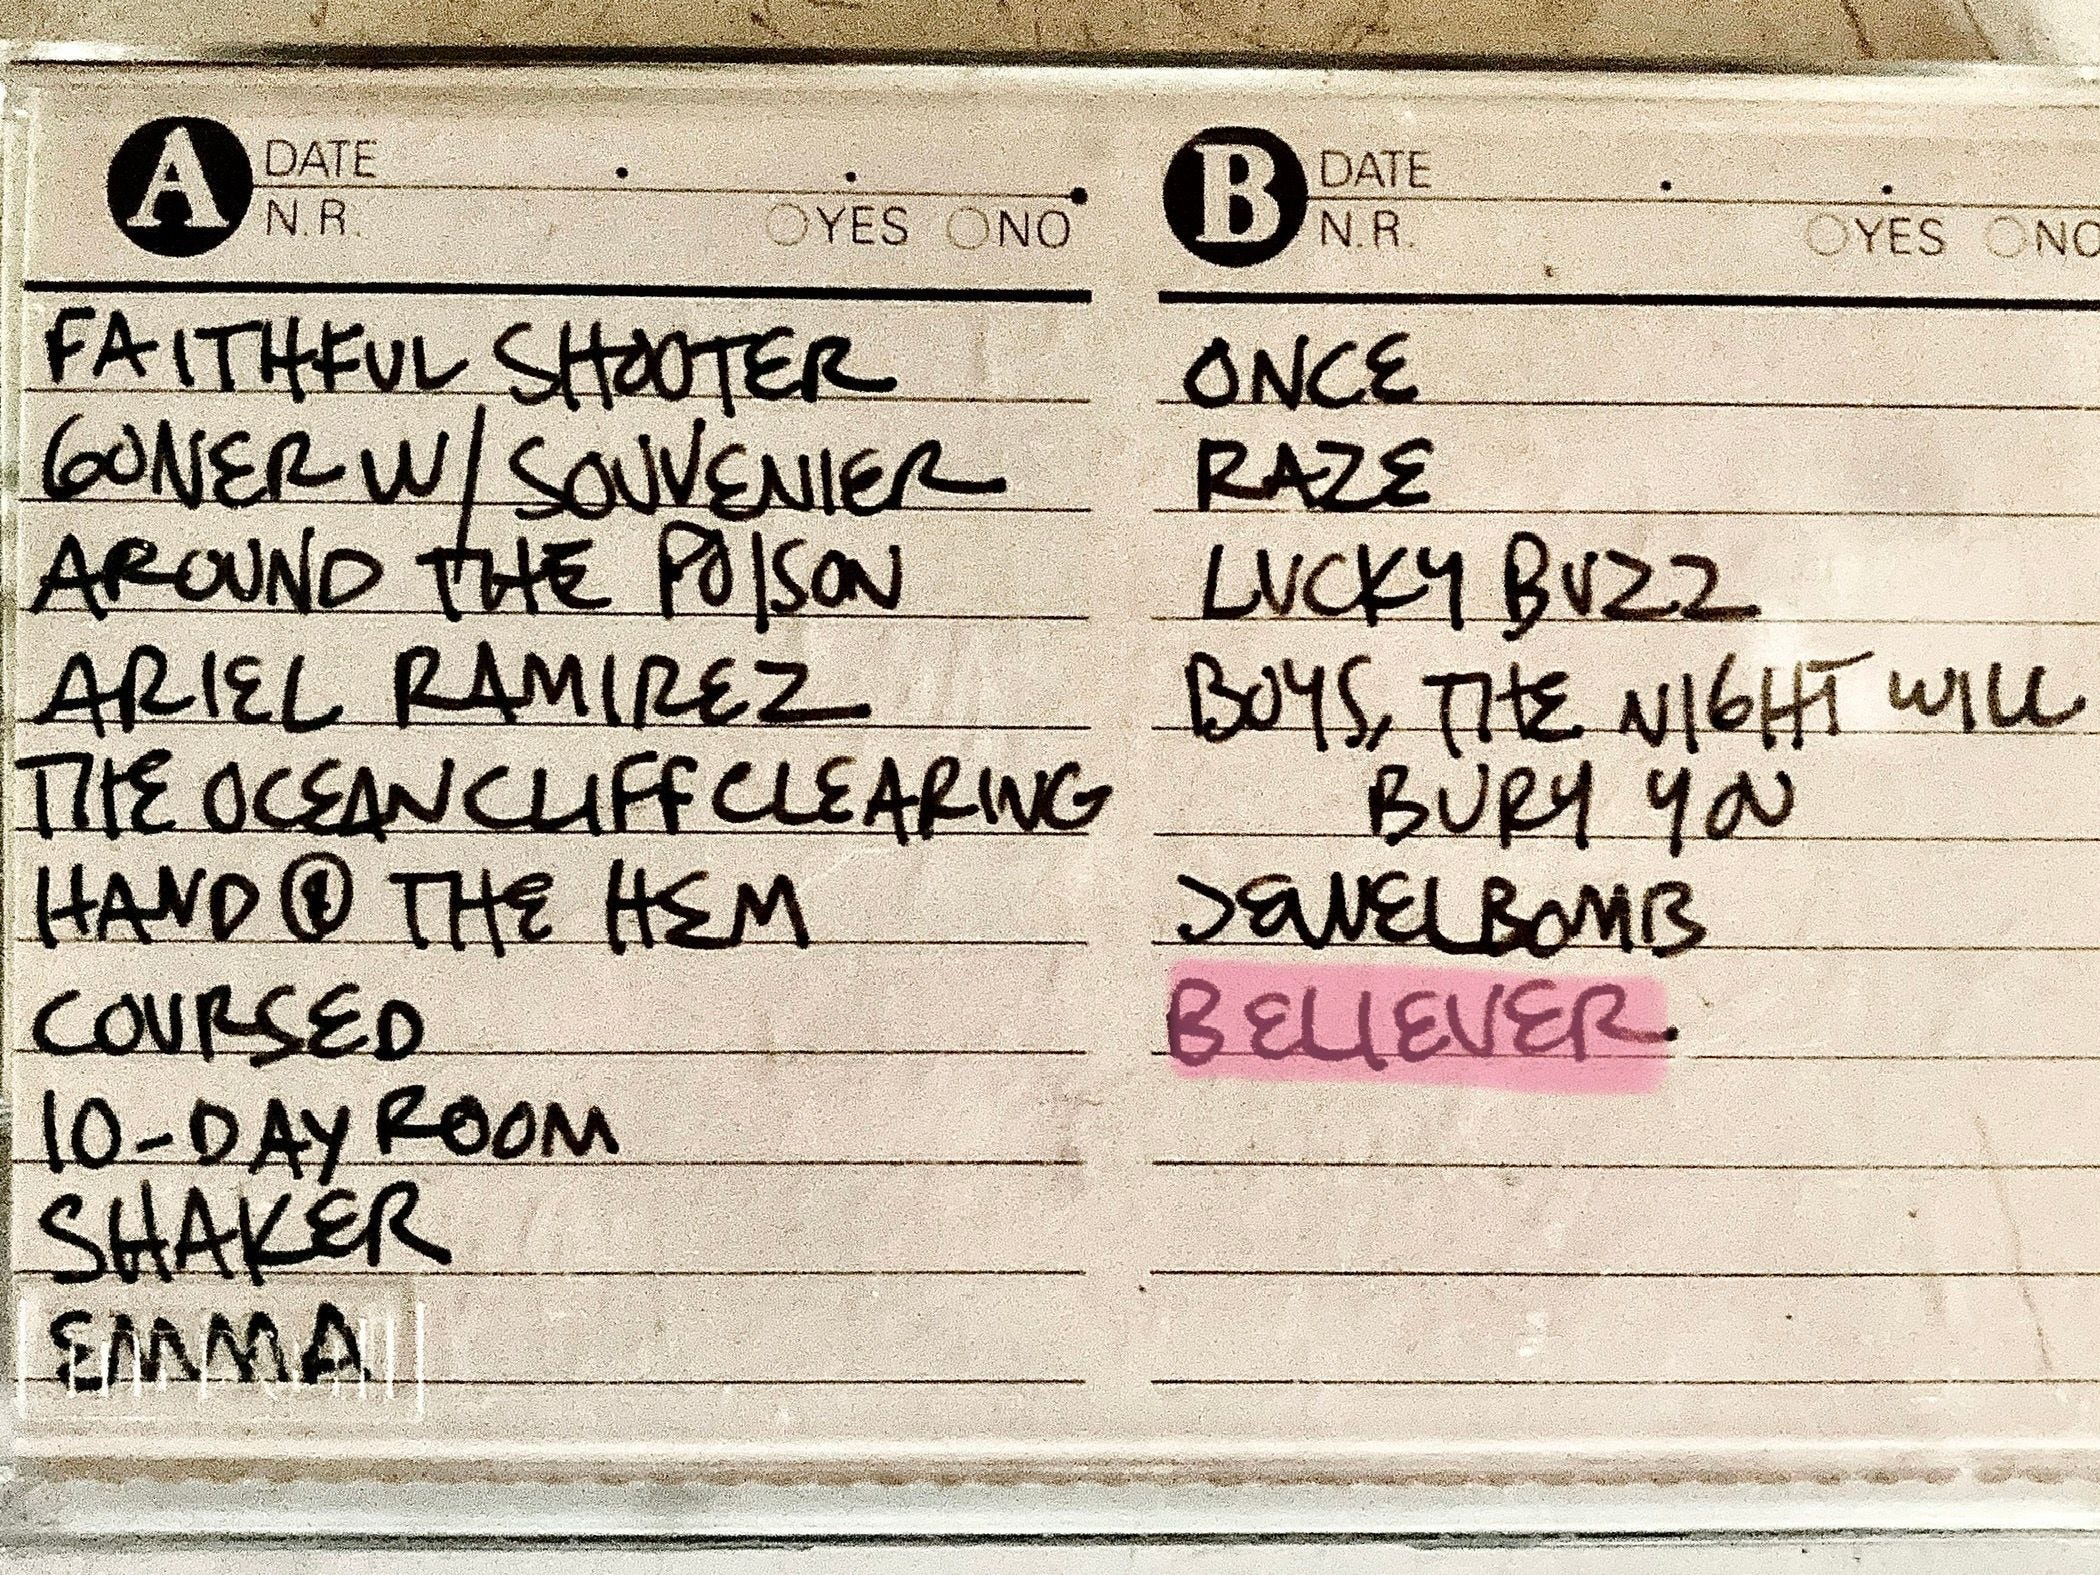 A DATE
N.R. YES NO
FAITHFUL SHOOTER
GONER W/ SOUVENIER
AROUND THE POISON
ARIEL RAMIREZ
THE OCEANCLIFFCLEARING
HAND @ THE HEM
COURSED
10-DAY ROOM
SHAKER
EMMA
B DATE
N.R. YES NO
ONCE
RAZE
LUCKY BUZZ
BOYS, THE NIGHT WILL
BURY YOU
JEWELBOMB
BELIEVER